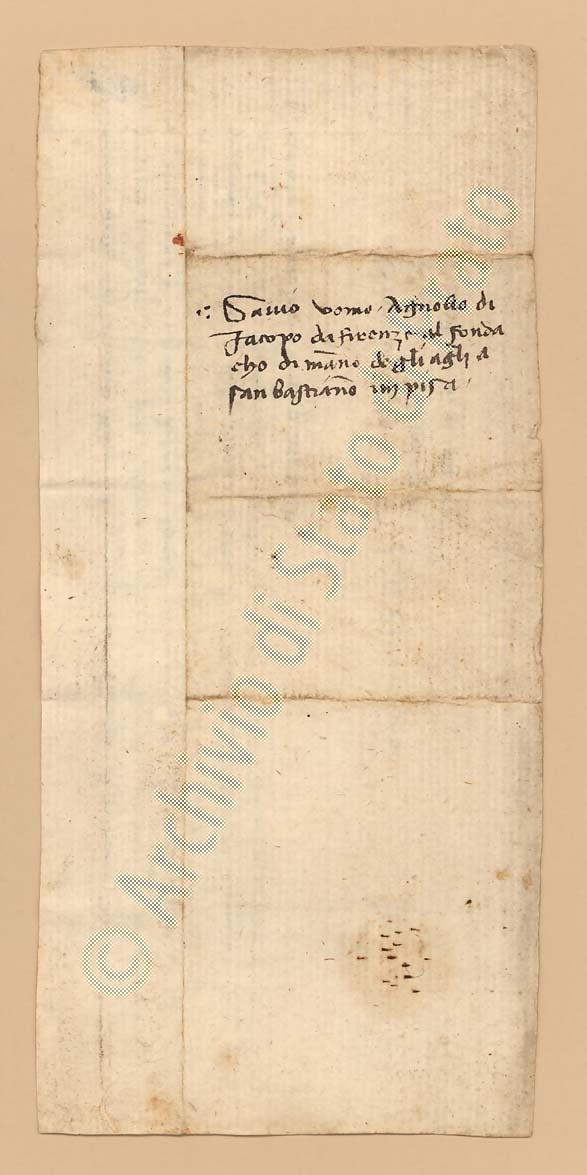 Savio uomo Agnolo di
Jacopo da firenze al fonda
cho di mano degli agli a
san bastiano in pisa
© Archivio di Stato di Prato